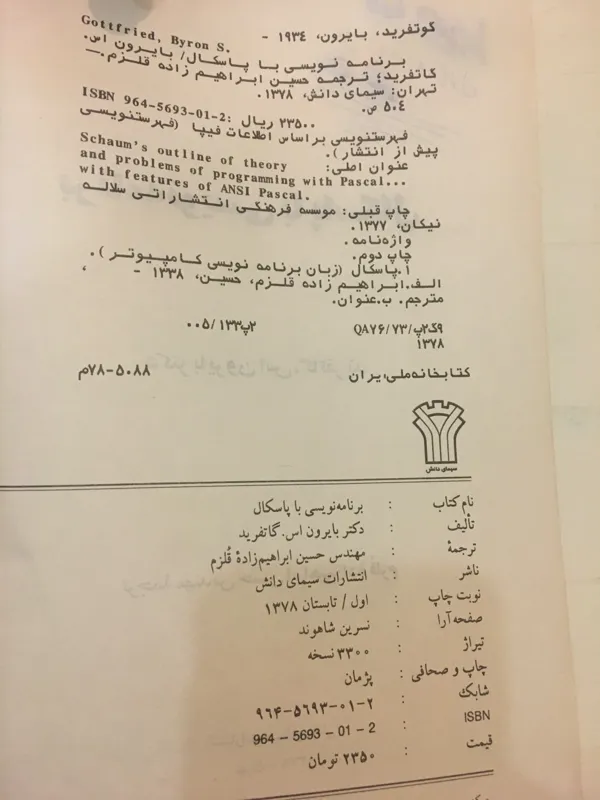 گوتفرید، بایرون، ۱۹۳٤ -
Gottfried, Byron S.
برنامه نویسی با پاسکال/ بایرون اس.
گاتفرید؛ ترجمه حسین ابراهیم زاده قلزم.—
تهران: سیمای دانش، ۱۳۷۸.
٥۰٤ ص.
ISBN 964-5693-01-2: ۲۳٥۰۰ ریال
فهرستنویسی براساس اطلاعات فیپا (فهرستنویسی
پیش از انتشار).
عنوان اصلی: Schaum's outline of theory
and problems of programming with Pascal...
with features of ANSI Pascal.
چاپ قبلی: موسسه فرهنگی انتشاراتی سلاله
نیکان، ۱۳۷۷.
واژه‌نامه.
چاپ دوم.
۱.پاسکال (زبان برنامه نویسی کامپیوتر).
الف.ابراهیم زاده قلزم، حسین، ۱۳۳۸ - ،
مترجم. ب.عنوان.
۹گ۲پ/۷۳/QA۷۶ ۲پ۱۳۳/۰۰٥
۱۳۷۸
کتابخانه ملی ایران ۵۰۸۸-۷۸م
سیمای دانش
نام کتاب : برنامه‌نویسی با پاسکال
تألیف : دکتر بایرون اس. گاتفرید
ترجمهٔ : مهندس حسین ابراهیم‌زادهٔ قُلزم
ناشر : انتشارات سیمای دانش
نوبت چاپ : اول / تابستان ۱۳۷۸
صفحه‌آرا : نسرین شاهوند
تیراژ : ۳۳۰۰ نسخه
چاپ و صحافی : پژمان
شابک : ۹۶۴-۵۶۹۳-۰۱-۲
ISBN : 964 – 5693 – 01 – 2
قیمت : ۲۳۵۰ تومان